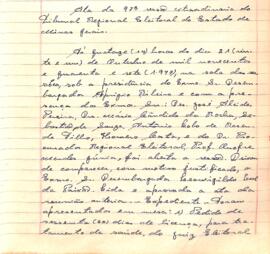 Ata da 97ª sessão extraordinária do
Tribunal Regional Eleitoral do Estado de
Minas Gerais.
Às quatorze (14) horas do dia 21 (vinte
e um) de outubro de mil novecentos
e quarenta e sete (1947), na sala das ses
sões, sob a presidência do Exmo. Sr. Desem
bargador Amigos Ribeiro e com a pre-
sença dos Exmos. Srs.: Des. José Alcides
Pereira, Drs. Mário Cândido da Rocha, Se-
bastião de Souza, Antônio
e do Dr. Pro
curador Regional Eleitoral, Prof. Onofre
Mendes Júnior, foi aberta a sessão. Deixou
de comparecer, com motivo justificado, o
Exmo. Sr. Desembargador
da Paixão. Lida e aprovada a ata da
reunião anterior. - Expediente - Foram
apresentados em mesa: 1) Pedido de
sessenta (60) dias de licença, para tra-
tamento de saúde, do juiz Eleitoral